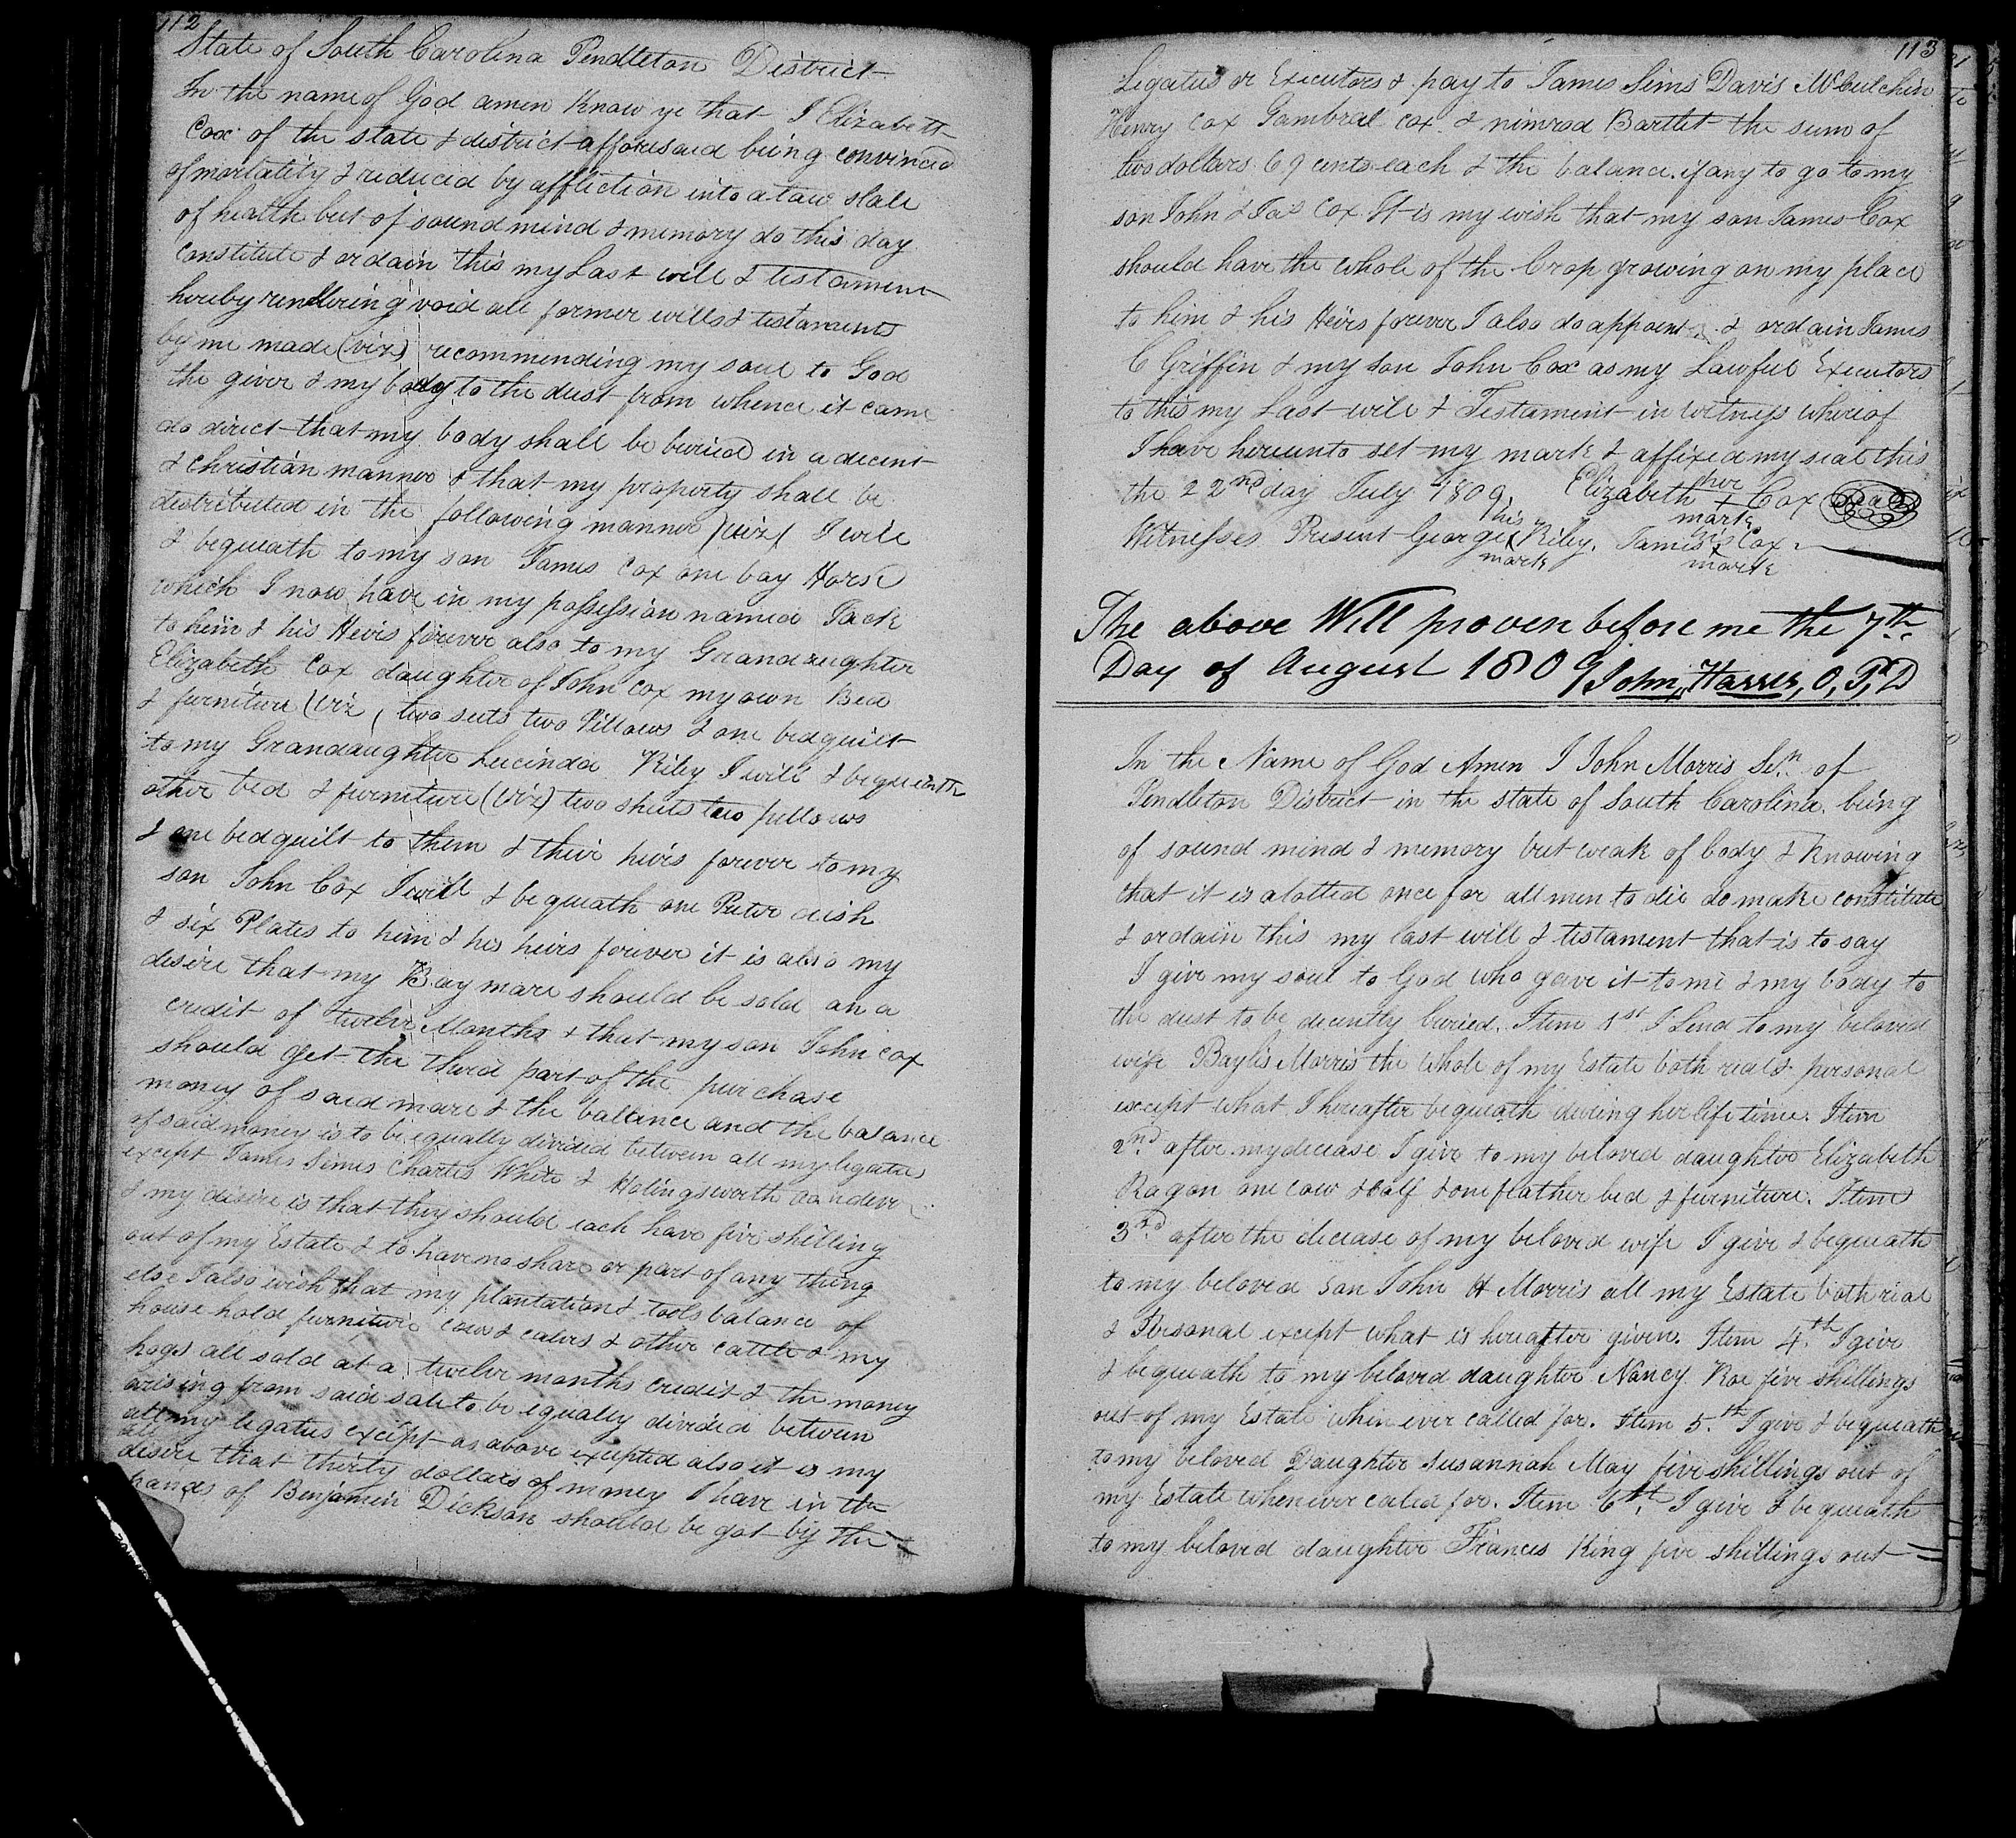 112
State of South Carolina Pendleton District
In the name of God amen Know ye that I Elizabeth
Cox of the state & district afforesaid being convinced
of mortality & reduced by affliction into a low state
of health but of sound mind & memory do this day
constitute & ordain this my Last will & testament
hereby rendering void all former wills & testaments
by me made (viz) recommending my soul to God
the giver & my body to the dust from whence it came
do direct that my body shall be buried in a decent
& christian manner & that my property shall be
destributed in the following manner (viz) I will
& bequeath to my son James Cox one bay Horse
which I now have in my possession named Jack
to him & his Heirs forever also to my Grandaughter
Elizabeth Cox daughter of John Cox my own Bed
& furniture (viz, two seets two Pillows & one bedquilt
to my Grandaughter Lucinda Riley I will & bequeath
other bed & furniture (viz) two sheets two pillows
& one bedquilt to them & their heirs forever to my
son John Cox I will & bequeath one Puter dish
& six Plates to him & his heirs forever it is also my
desire that my Bay mare should be sold on a
credit of twelve Months & that my son John Cox
should get the third part of the purchase
money of said mare & the ballance and the balance
of said money is to be equally divided between all my legatees
except James Simes Charles White & Holingsworth
& my desire is that they should each have five shilling
out of my Estate & to have no share or part of any thing
else I also wish that my plantation & tools balance of
house hold furniture cows & calves & other cattle & my
hogs all sold at a twelve months credit & the money
arising from said sale to be equally divided between
all my legatees except as above excepted also it is my
desire that thirty dollars of money I have in the
hands of Benjamin Dickson should be got by the
113
Legatees or Executors & pay to James Sims Davis McCutchin
Henry Cox Gambrel Cox & nimrod Bartlet the sum of
two dollars 69 cents each & the balance if any to go to my
son John & Jas Cox It is my wish that my son James Cox
should have the whole of the Crop growing on my place
to him & his Heirs forever I also do appoint & ordain James
C Griffin & my son John Cox as my Lawful Executors
to this my Last will & Testament in witness whereof
I have hereunto set my mark & affixed my seal this
the 22nd day July 1809. Elizabeth her + mark Cox Seal
Witnesses Present George his mark Riley. James his x mark Cox
The above Will proven before me the 7th
Day of August 1809 John Harris, O, P, D
In the Name of God Amen I John Morris Senr of
Pendleton District in the state of South Carolina being
of sound mind & memory but weak of body & Knowing
that it is alotted once for all men to die do make constitute
& ordain this my last will & testament that is to say
I give my soul to God who gave it to me & my body to
the dust to be decently buried. Item 1st I Lend to my beloved
wife Baylis Morris the whole of my Estate both real & personal
except what I hereafter bequeath during her life time. Item
2nd after my decease I give to my beloved daughter Elizabeth
Ragan one cow & calf & one feather bed & furniture. Item
3rd after the decease of my beloved wife I give & bequeath
to my beloved son John H Morris all my Estate both real
& Personal except what is hereafter given. Item 4th I give
& bequeath to my beloved daughter Nancy Roe five shillings
out of my Estate when ever called for. Item 5th I give & bequeath
to my beloved Daughter Susannah May five shillings out of
my Estate whenever called for. Item 6th I give & bequeath
to my beloved daughter Frances King five shillings out